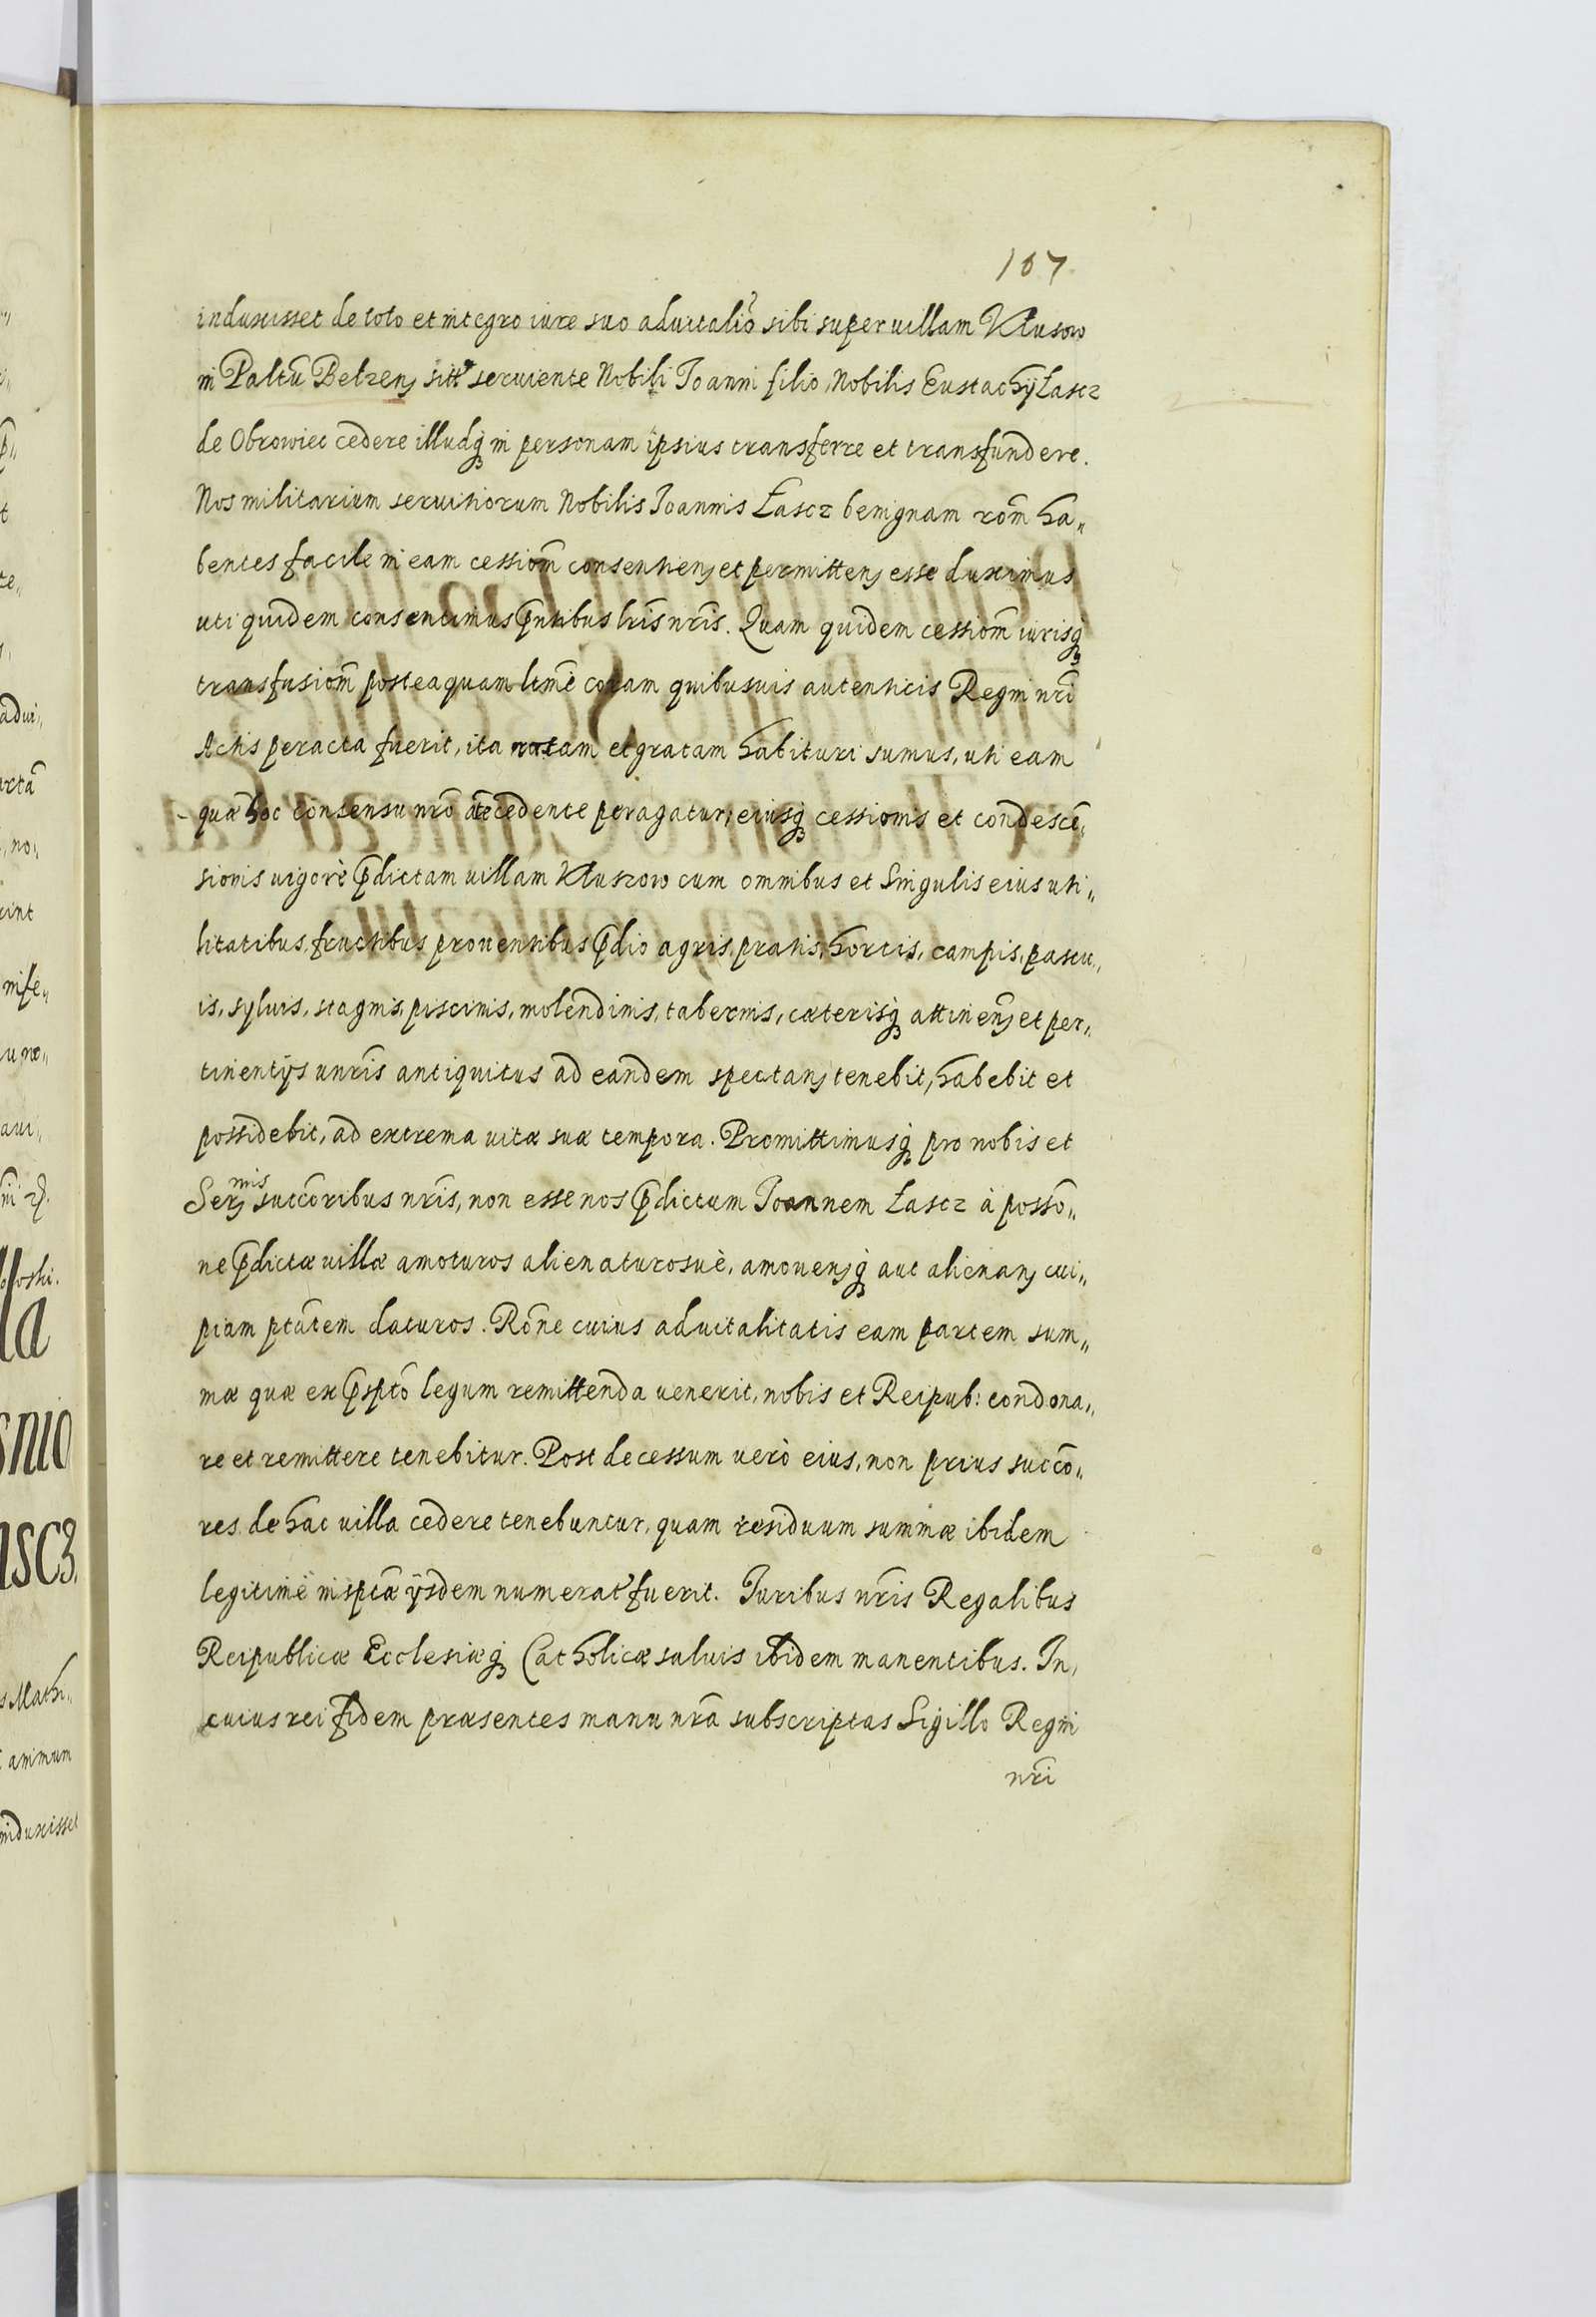 107
induxisset de toto et integro iure suo aduitalĩo sibi super uillam Kłuszow
in Paltũ Belzens sitt seruiente Nobili Joanni filio Nobilis Eustachÿ Łascz
de Obrowiec cedere illudq in personam ipsius transferre et transfundere.
Nos militarium seruitiorum Nobilis Joannis Łascz benignam rõm ha„
bentes facile in eam cessiõm consentiens et permittens esse duximus
uti quidem consentimus p̃ntibus lris nris. Quam quidem cessiõm iurisq
transfusiõm posteaquam ltmè coram quibusuis autenticis Regni nri
Actis peracta fuerit, ita ratam et gratam habituri sumus, uti eam
quæ hoc consensu nrõ ãtecedente peragatur, eiusq cessionis et condescẽ„
sionis uigorè p̃dictam uillam Kłuszow cum omnibus et Singulis eius uti„
litatibus, fructibus prouentibus p̃dio agris, pratis, hortis, campis, pascu„
is, syluis, stagnis, piscinis, molendinis, tabernis, cæterisq attinens et per„
tinentÿs unr̃is antiquitus ad eandem spectans tenebit, habebit et
possidebit, ad extrema uitæ suæ tempora. Promittimusq pro nobis et
Sers nis succoribus nris, non esse nos p̃dictum Joannem Łascz à possõ„
ne p̃dictæ uillæ amoturos alienaturosuè, amouensq aut alienans cui„
piam ptãtem daturos. Rõne cuius aduitalitatis eam partem sum„
mæ quæ ex p̃sptõ legum remittenda uenerit, nobis et Reipub: condona„
re et remittere tenebitur. Post decessum uerò eius, non prius succõ„
res de hac uilla cedere tenebuntur, quam residuum summæ ibidem
legitimè inspctæ ÿsdem numerat fuerit. Juribus nris Regalibus
Reipublicæ Ecclesiæq Catholicæ saluis ibidem manentibus. In
cuius rei fidem præsentes manu nrã subscriptas Sigillo Regni
nri